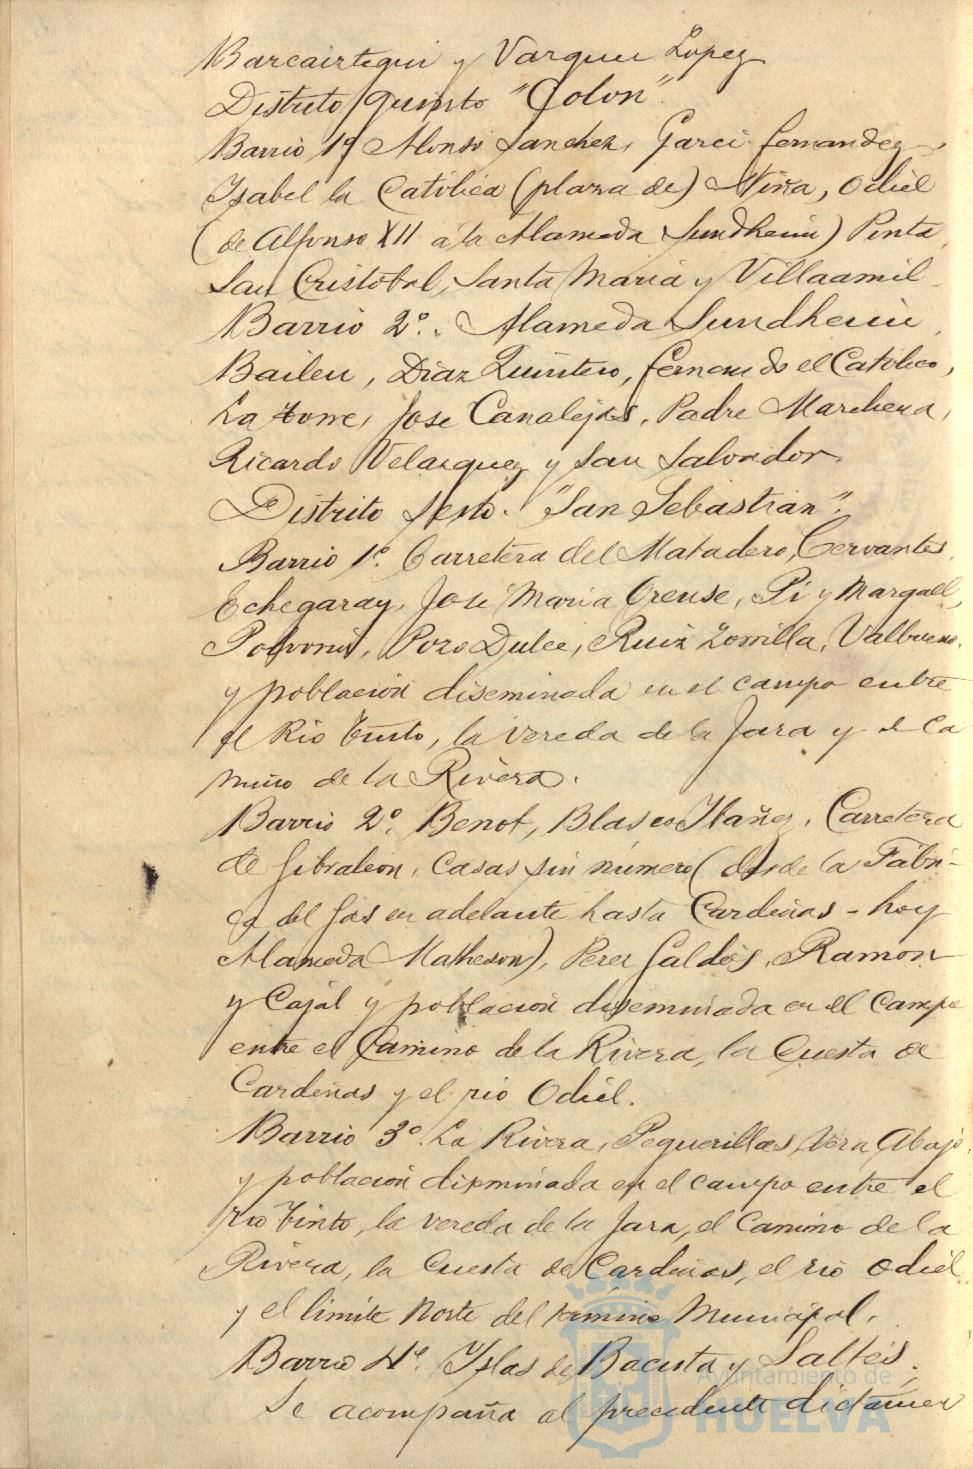 Barcaiztegui y Vazquez Lopez
Distrito quinto "Colon".
Barrio 1º Alonso Sanchez, Garci-Fernandez,
Isabel la Católica (plaza de) Niña, Odiel
(de Alfonso XII a la Alameda Sundheim) Pinta,
San Cristobal, Santa Maria y Villaamil.
Barrio 2º. Alameda Sundheim,
Bailen, Diaz Quintero, Fernando el Católico,
La Torre, Jose Canalejas, Padre Marchena,
Ricardo Velazquez y San Salvador.
Distrito Sesto. "San Sebastian".
Barrio 1º. Carretera del Matadero, Cervantes,
Echegaray, José Maria Orense, Pi y Margall,
Polvorin, Pozo Dulce, Ruiz Zorrilla, Valbuena,
y población diseminada en el campo entre
el Rio Tinto, la vereda de la Jara y el ca
mino de la Rivera.
Barrio 2º. Benot, Blasco Ibañez, Carretera
de Gibraleon, Casas sin número (desde la Fábri-
ca del Gas en adelante hasta Cardeñas - hoy
Alameda Matheson), Perez Galdós, Ramon
y Cajál y población diseminada en el campo
entre el Camino de la Rivera, la Cuesta de
Cardeñas y el rio Odiel.
Barrio 3º. La Rivera, Peguerillas, Vera Abajo,
y población diseminada en el campo entre el
rio Tinto, la vereda de la Jara, el Camino de la
Rivera, la Cuesta de Cardeñas, el rio Odiel
y el limite Norte del término Municipal.
Barrio 4º. Islas de Bacuta y Saltés.
Se acompaña al precedente dictamen
Ayuntamiento de
HUELVA